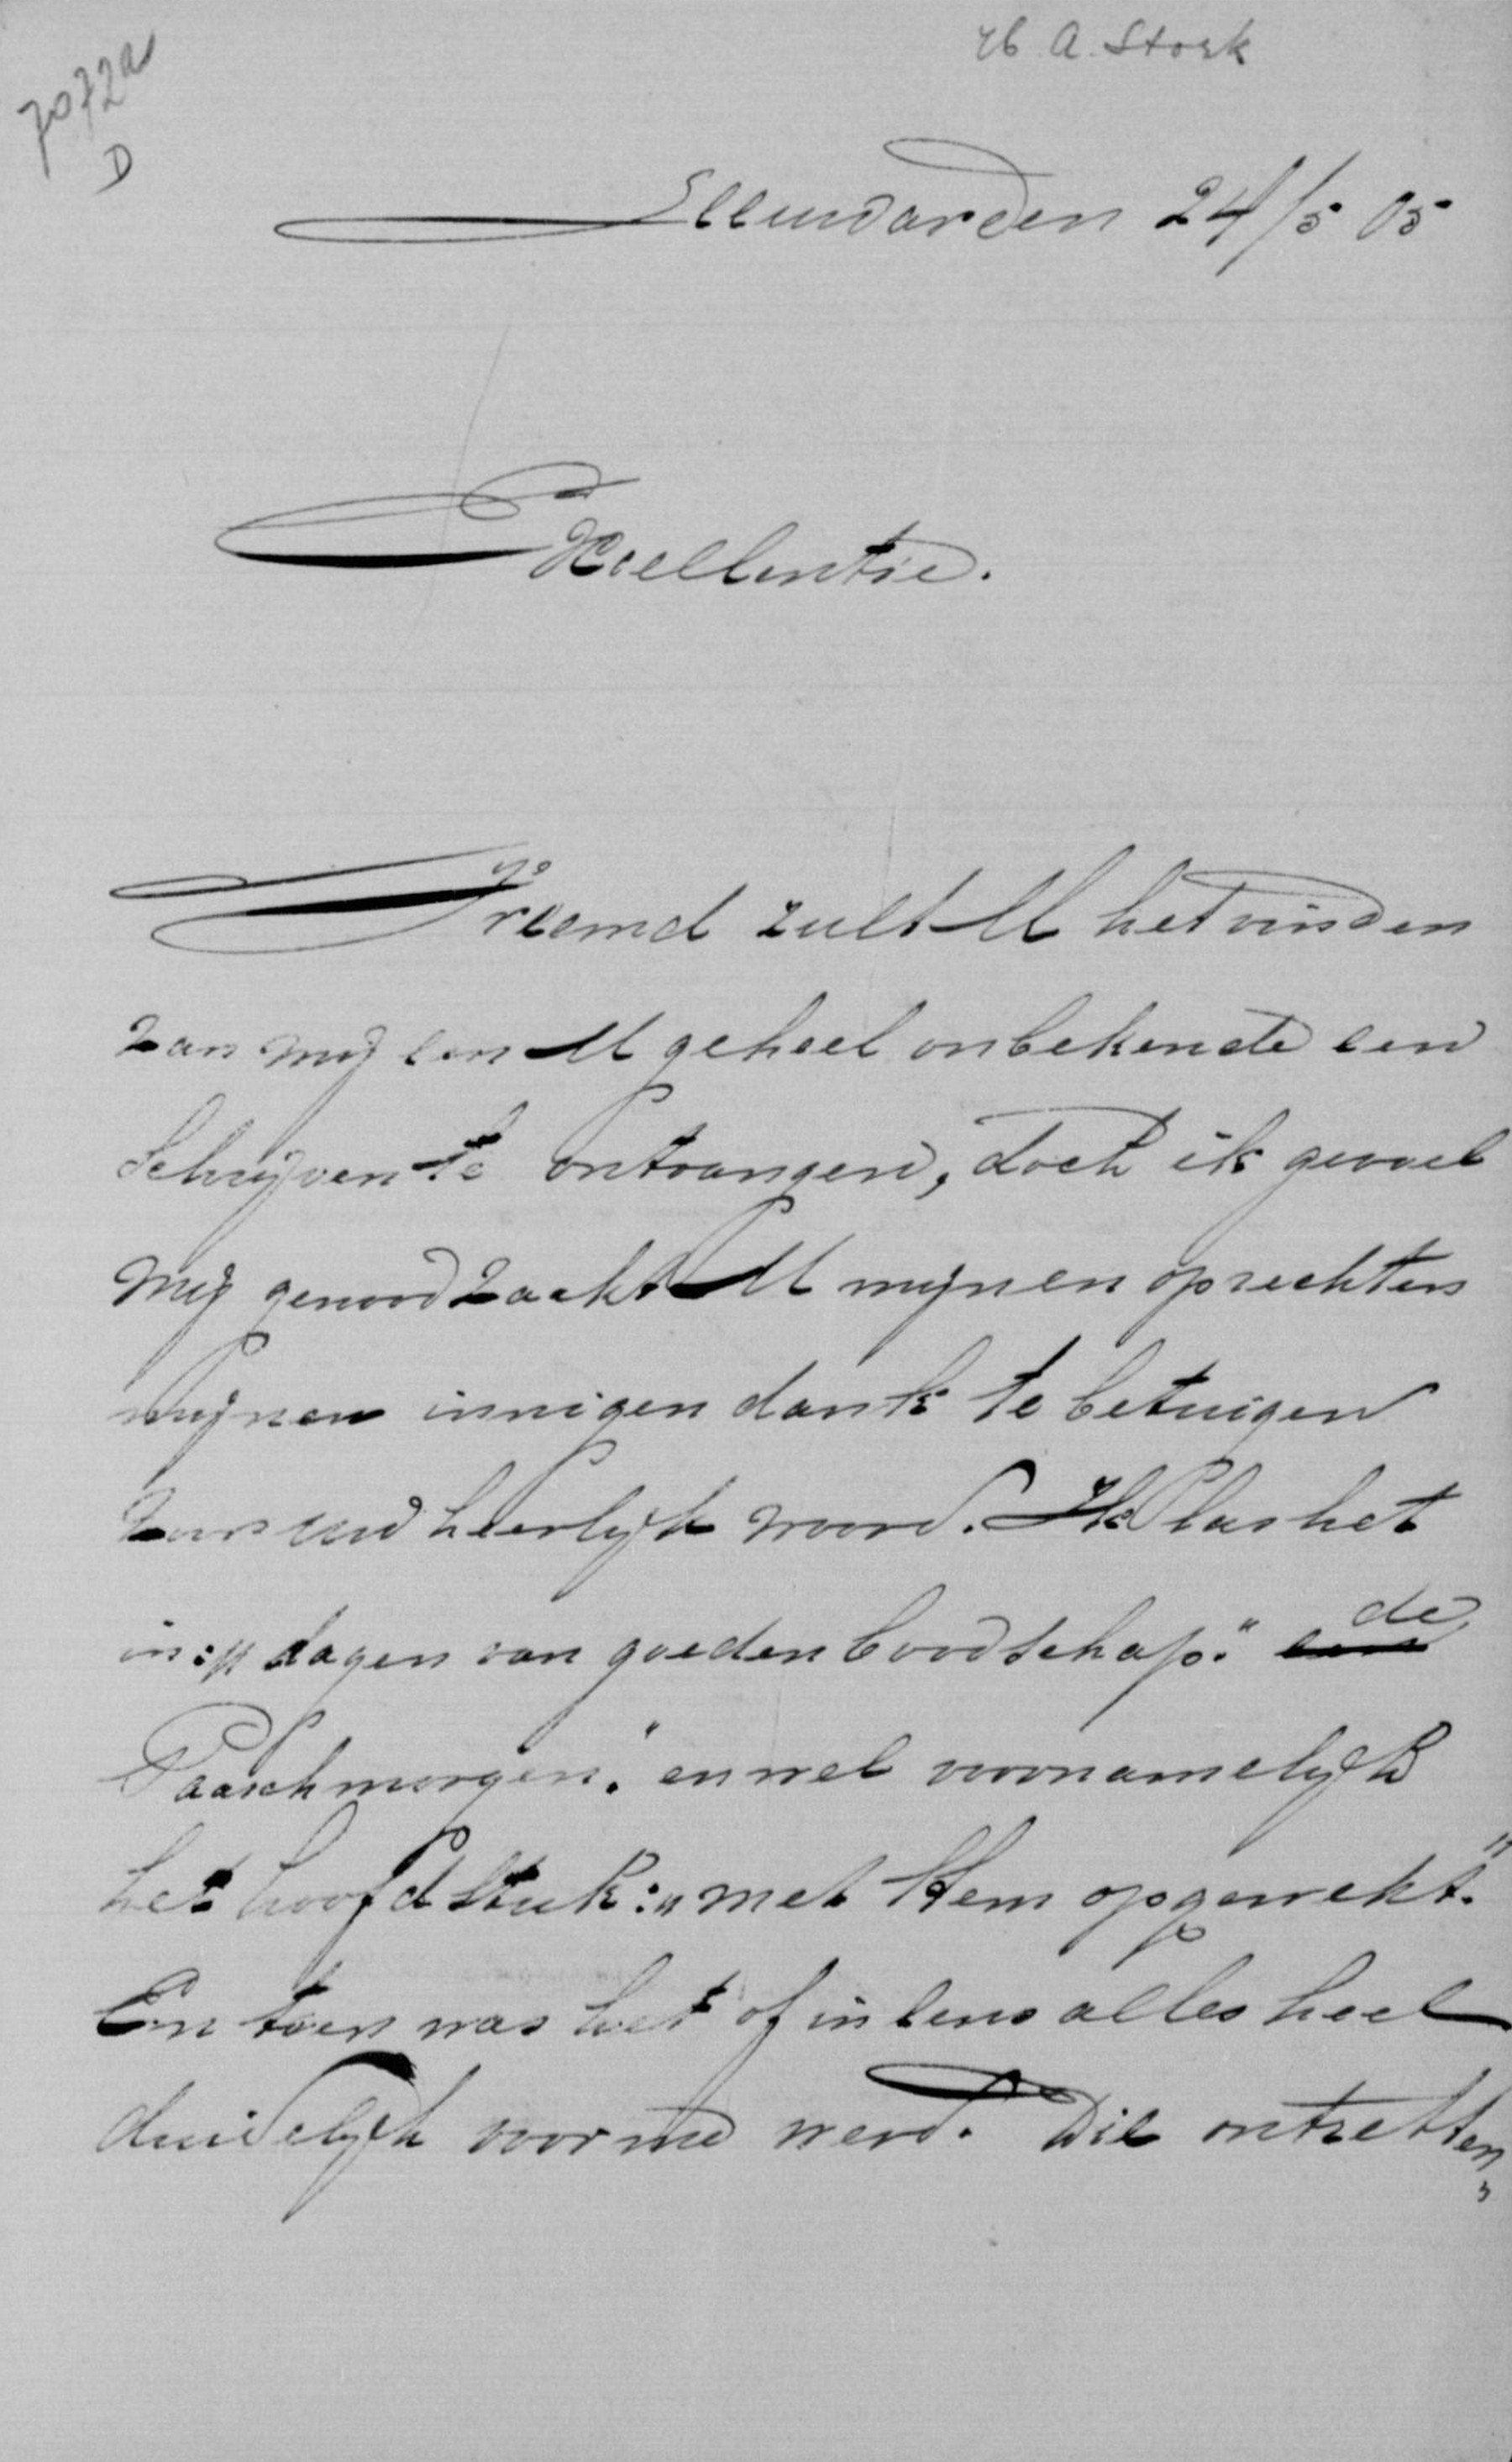 H. A. Stork
7072a
D
Leeuwarden 24/5 05
Excellentie.
Vreemd zult U het vinden
van mij een U geheel onbekende een
schrijven te ontvangen, doch ik gevoel
mij genoodzaakt U mijnen oprechten
mijnen innigen dank te betuigen
voor uw heerlijk woord. Ik las het
in: „dagen van goeden boodschap." de
Paaschmorgen." en wel voornamelijk
het hoofdstuk: „met Hem opgewekt."
En toen was het of in eens alles heel
duidelijk voor me werd. Die ontzetten„